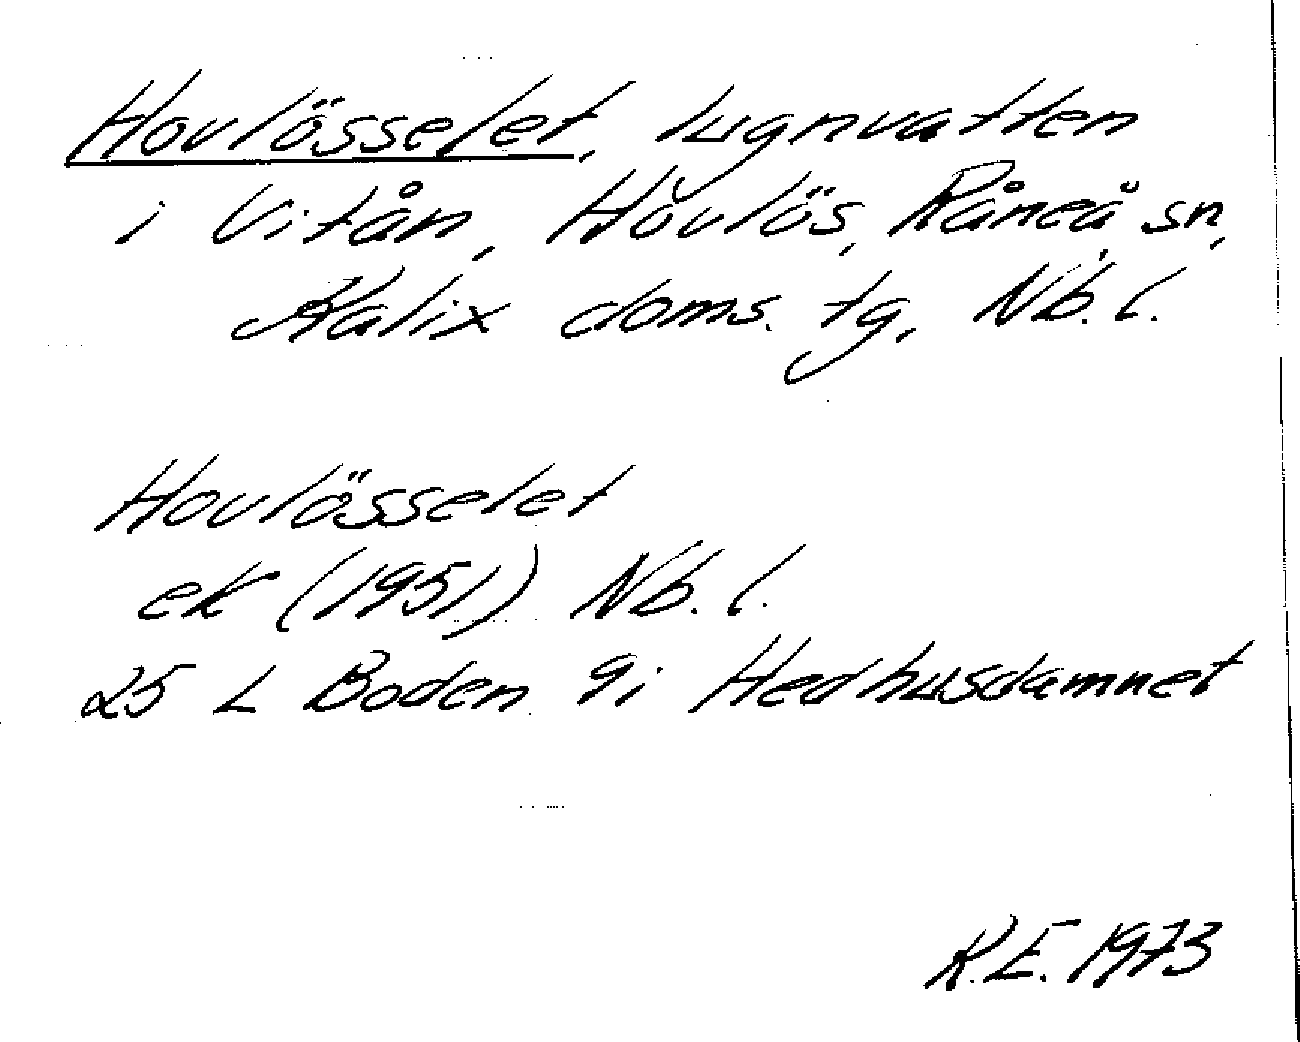 Hovlösselet, lugnvatten
i Vitån, Hovlös, Råneå sn,
Kalix doms. tg, Nb. l.
Hovlösselet
ek (1951) Nb. l.
25 L Boden 9i Hedhusdamnet
K.E. 1973